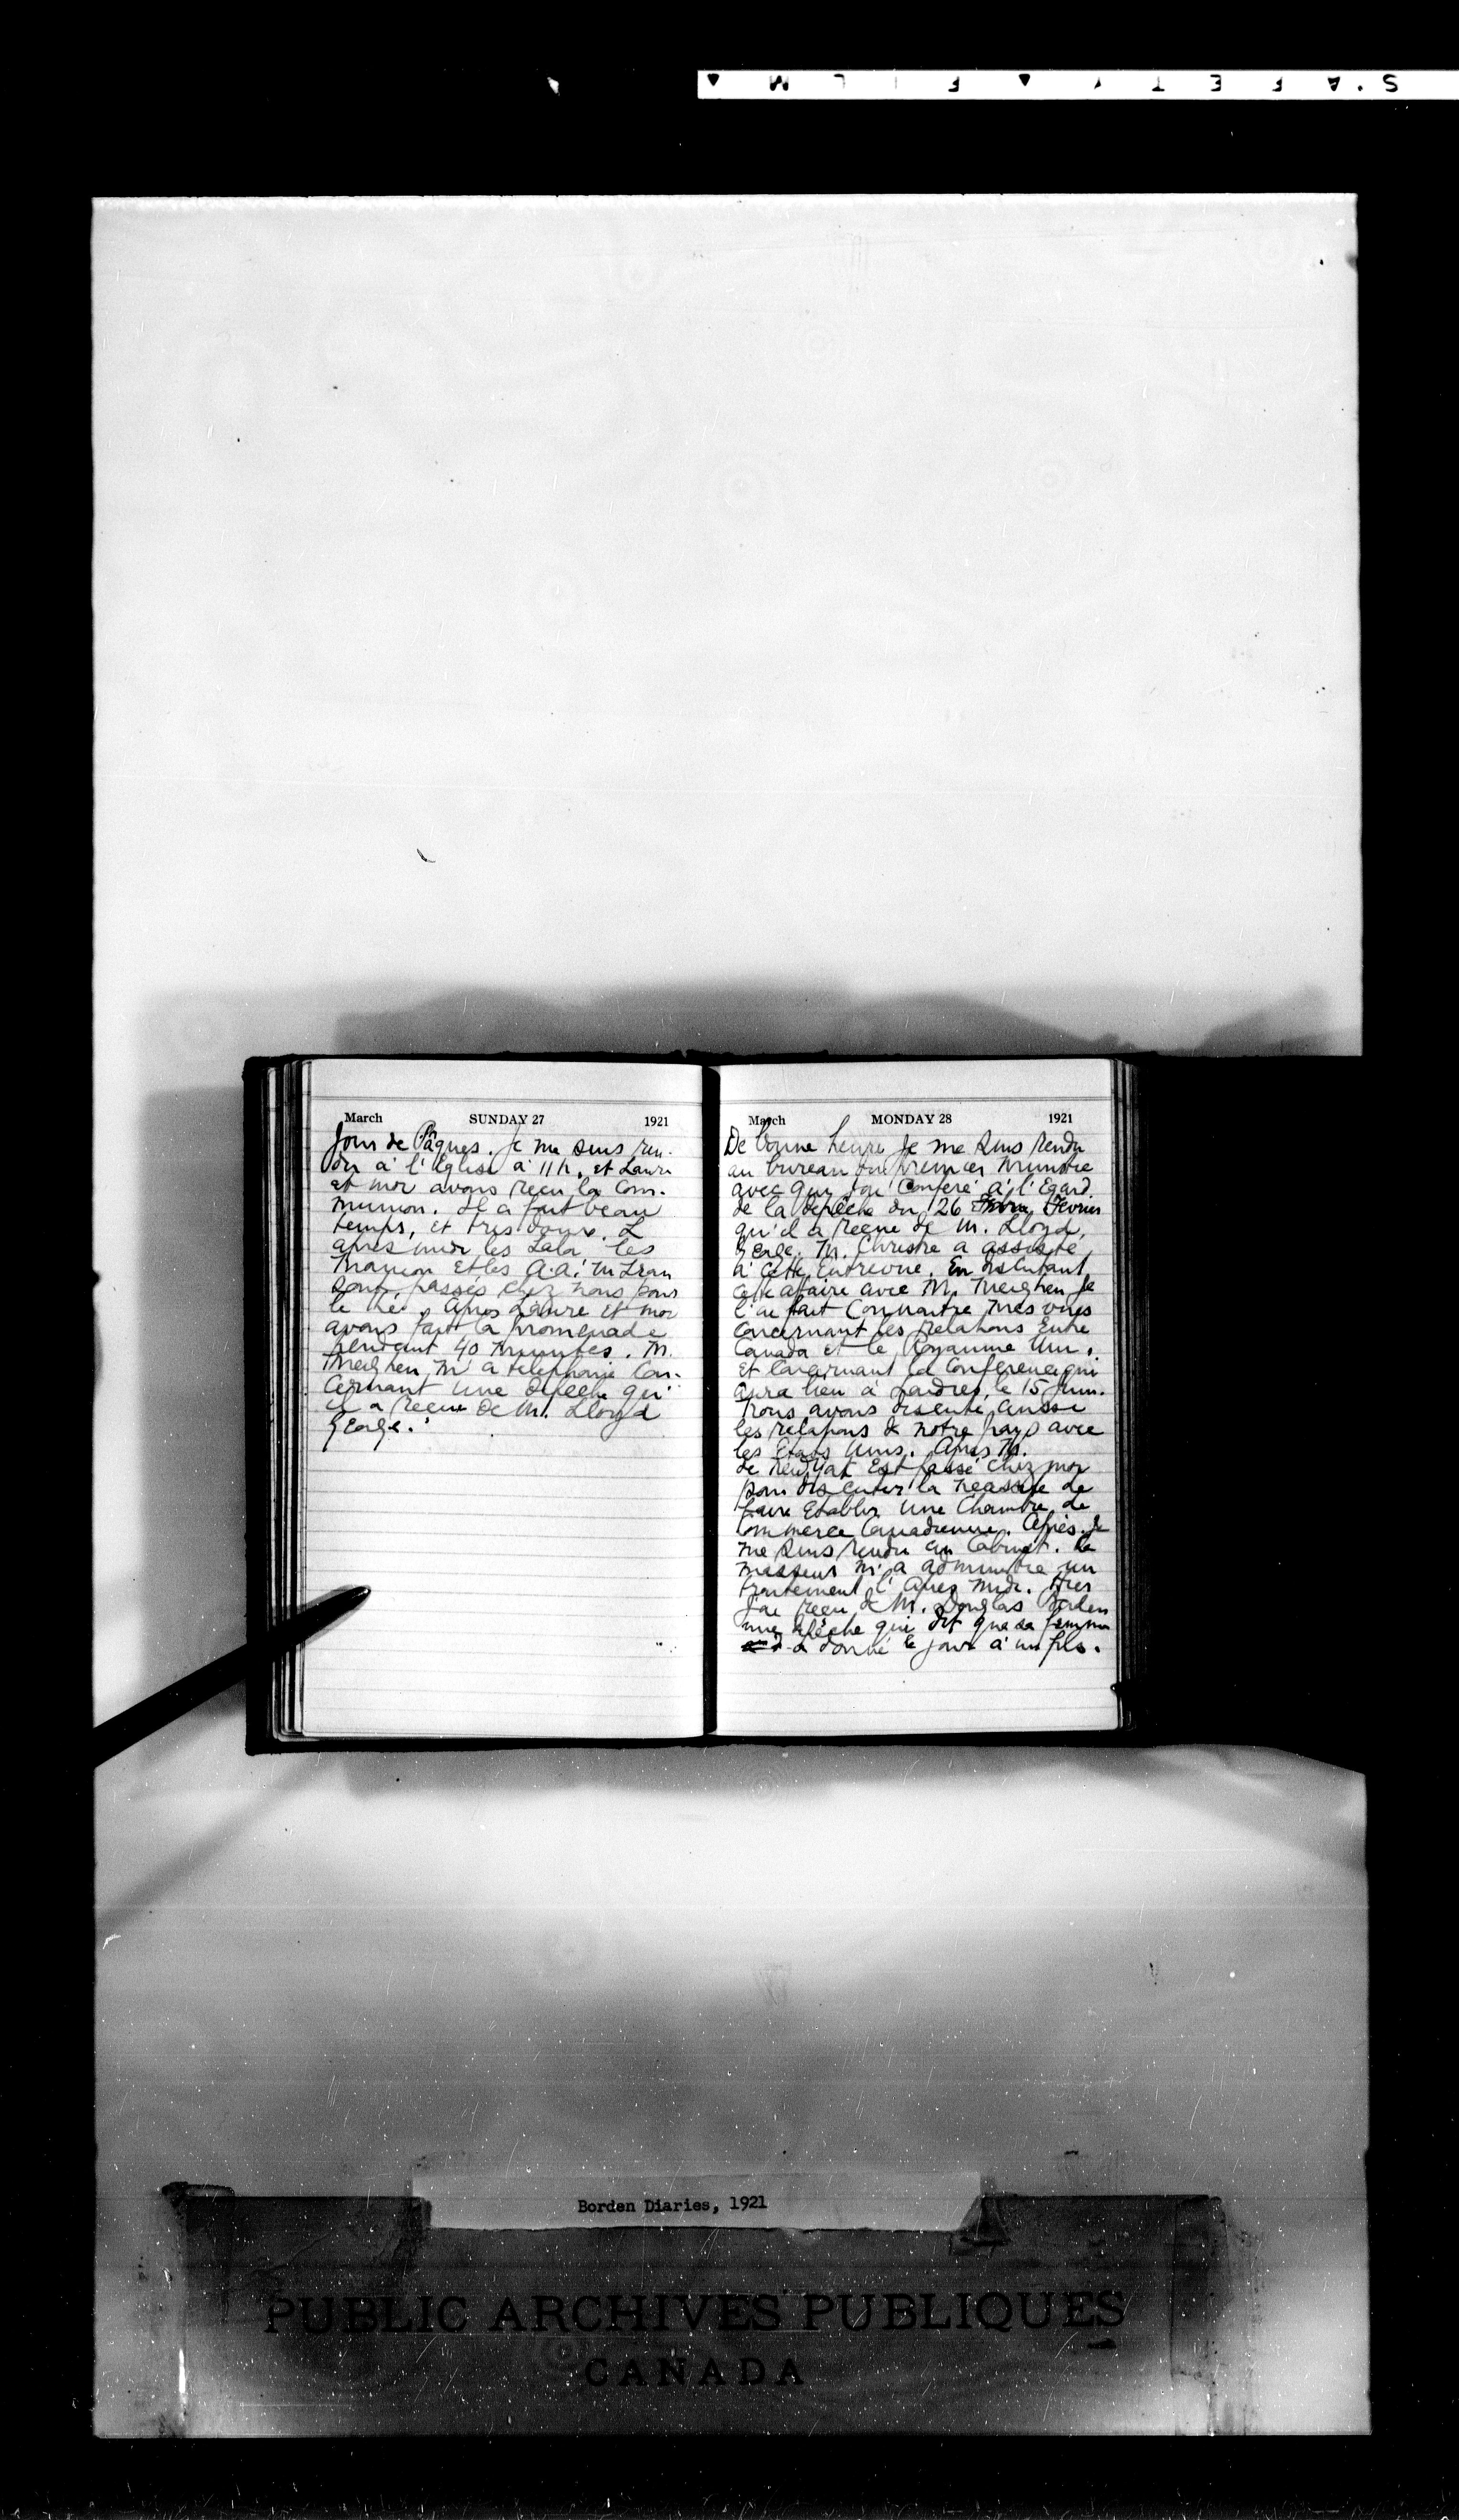 SAFETY FILM
March SUNDAY 27 1921
Jour de Pâques. Je me suis ren-
du à l'Eglise à 11 h. et Laura
et moi avons reçu la Com-
munion. Il a fait beau
temps, et tres doux. L
apres midi les les
et les A.A. McLean
sont passés chez nous pour
le thé. Apres Laura et moi
avons fait la promenade
pendant 40 minutes. M.
Meighen m'a telephoné con-
cernant une depeche qu'
il a reçue de M. Lloyd
George.
March MONDAY 28 1921
De bonne heure je me suis rendu
au bureau du premier ministre
avec qui j'ai conferé à l'Egard
de la depeche du 26 Fevrier
qu'il a reçue de M. Lloyd
George. M. Christie a assisté
à cette Entrevue. En discutant
cette affaire avec M. Meighen je
l'ai fait connaitre mes vues
concernant les relations Entre
Canada et le Royaume Uni,
et concernant la Conference qui
aura lieu à Londres, le 15 Juin.
Nous avons discuté aussi
les relations de notre pays avec
les Etats Unis. Apres M.
de New York Est passé chez moi
pour discuter la de
faire Etablir une Chambre de
Commerce Canadienne. Apres je
me suis rendu au Cabinet. Le
masseur m'a administre un
traitement l'apres midi. Hier
j'ai reçu de M. Douglas Borden
une depeche qui dit que sa femme
a donné le jour à un fils.
Borden Diaries, 1921
PUBLIC ARCHIVES PUBLIQUES
CANADA